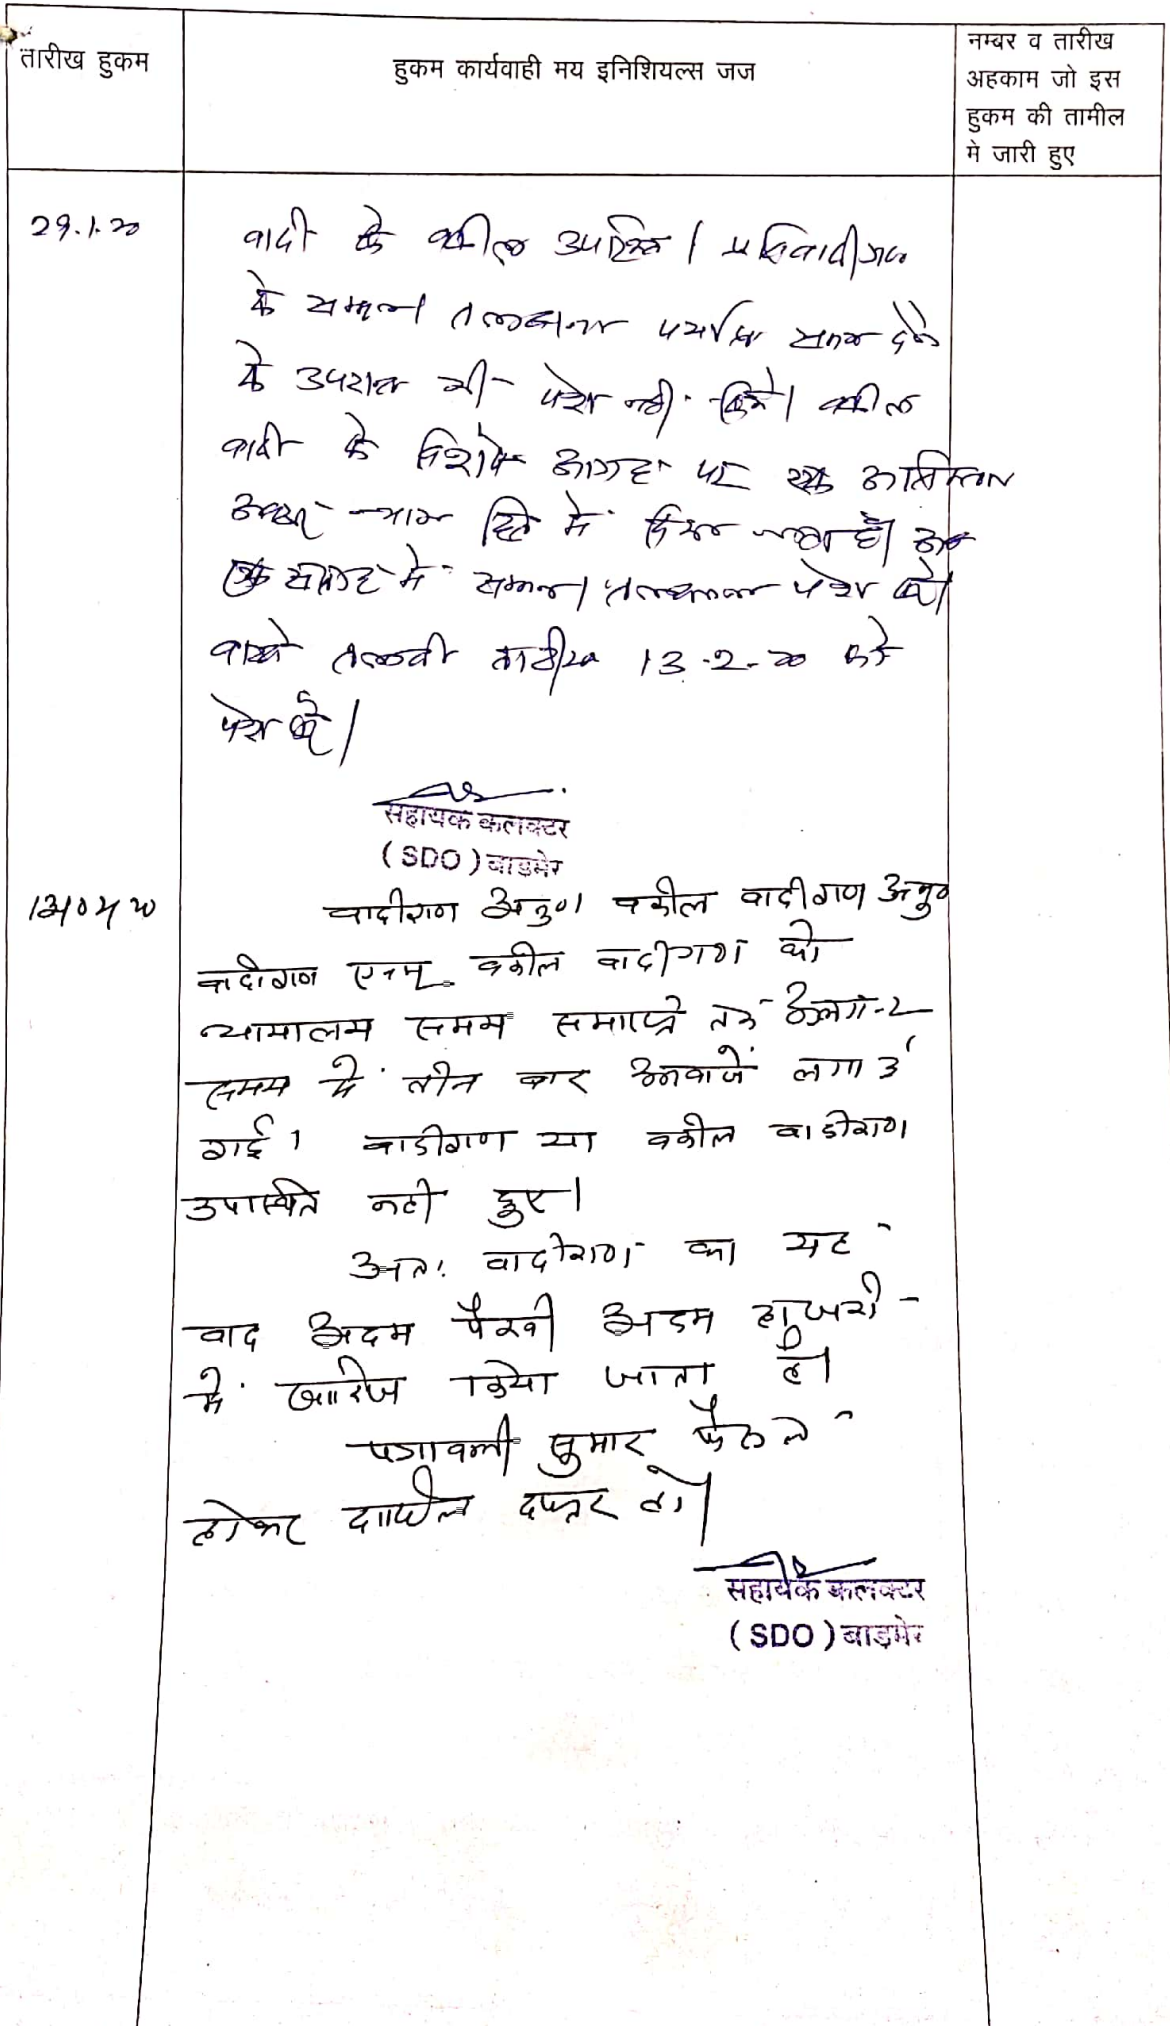 तारीख हुकम
हुकम कार्यवाही मय इनिशियल्स जज
नम्बर व तारीख
अहकाम जो इस
हुकम की तामील
मे जारी हुए
29.1.20
वादी के वकील उपस्थित। प्रतिवादीगण
के समन्स/तलबाना पर्याप्त समय देने
के उपरान्त भी पेश नहीं किये। वकील
वादी के विशेष आग्रह पर एक अतिरिक्त
अवसर न्याय हित में दिया जाता है।
एक सप्ताह में समन्स/तलबाना पेश करे।
वास्ते तलबी तारीख 13.2.20 को
पेश हो।
सहायक कलक्टर
(SDO) बाड़मेर
वादीगण अनु0। वकील वादीगण अनु0
वादीगण एवम् वकील वादीगण को
न्यायालय समय समाप्ति तक अलग-2
समय में तीन बार आवाजें लगाई
गई। वादीगण या वकील वादीगण
उपस्थित नही हुए।
अतः वादीगण का यह
वाद अदम पैरवी अदम हाजरी
में खारिज किया जाता है।
पत्रावली सुमार फैसल
होकर दाखिल दफ्तर हो।
सहायक कलक्टर
(SDO) बाड़मेर